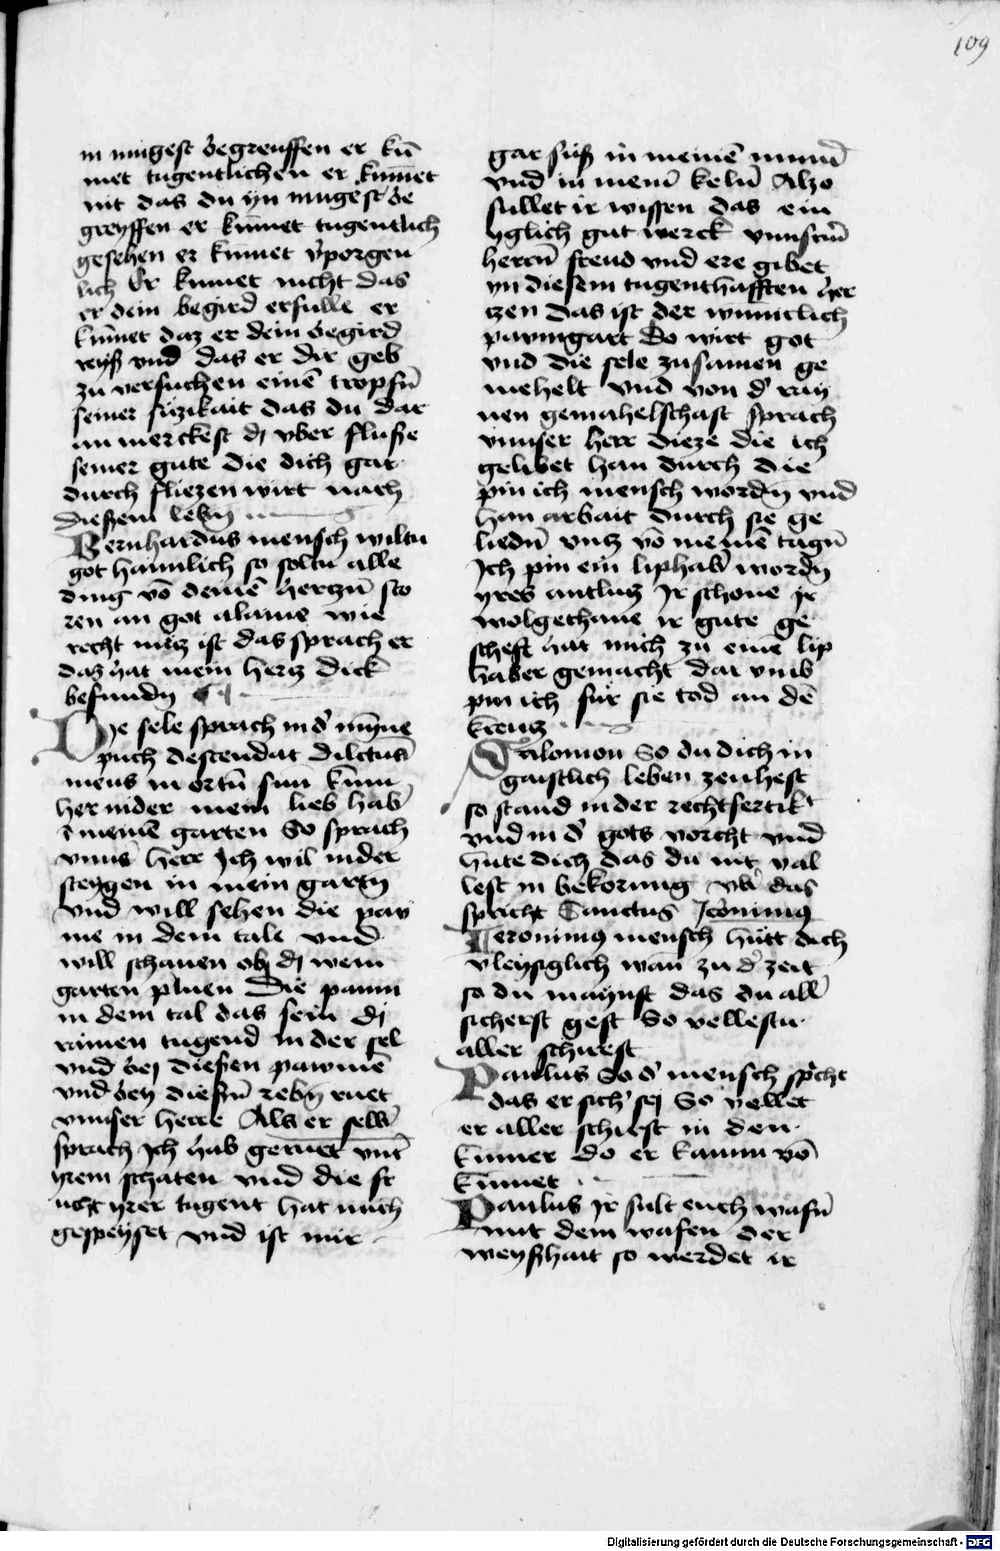 109
in mugest begreuffen er kū
met tugentlichen er kum̄et
nit das du yn mugest be
greyffen er kum̄et tugentlich
gesehen er kum̄et v̓porgen
lich Er kumet nicht das
er dein begird erfulle er
kūmet daz er dein begird
reyß vnd das er dir geb
zu versuchen einē tropfn̄
seiner suzikait das du dar
an merckest dj vber fluße
seiner gute die dich gar
durch fliezen wirt nach
dießem lebn̄
Bernhardus mensch wiltu
got haimlich so soltu alle
ding vō deinē hertzn̄ sto
ren an got alaine wie
recht nütz ist das sprach er
daz hat mein hertz dick
befundn̄
Die sele sprach in d̓ mȳne
puch descendat dilctus̄
meus in ortū suu kum
her nider mein lieb hab̄
ī meinē garten So sprach
vnns̄ herr Ich wil nider
steygen in mein gartn̄
vnd will sehen die paw
me in dem tale vnd
will schawen ob dj wein
garten pluen Die paum
in dem tal das sein dj
rainen tugend in der sel
vnd bej dießen pawmē
vnd bey dießn̄ rebn̄ ruet
vnnser herre Als er selb̄
sprach Ich hab geruet vnt̄
yrem schaten vnd die fr
ucht yrer tugent hat mich
gespeyset vnd ist mir
gar süß in meinē mund
vnd in meinē keln̄ Alzo
sullet ir wissen das ein
yglich gut werck vnnserm̄
herrn̄ freud vnd ere gibet
yn diesem tugenthafften her
tzen das ist der wūnnclich
pawmgart Do wirt got
vnd die sele zusamen ge
mehelt vnd von d̓ ray
nen gemahelschaft sprach
vnnser herr dieze die ich
gelibet han durch die
pin ich mensch wordn̄ vnd
han arbait durch sie ge
liedn̄ vntz vō meinē tagn̄
Ich pin ein liphab̄ wordn̄
yres antlutz Ir schone ir
wolgethane ir gute ge
scheft hat mich zu einē lip
haber gemacht dar vmb
pin ich für sie tod an dē
kreutz
Salomon So du dich in
gaistlich leben zeuhest
so stand in der rechtfertik̄
vnd in d̓ gots vorcht vnd
hute dich das du nit val
lest in bekorung vb̄ das
spricht Sanctus Jeronimus
Jeronimus mensch hütt dich
vleysiglich wan zu d̓ zeit
so du maynst das du all̄
sicherst gest So vellestu
aller schirest
Paulus So d̓ mensch sp̓cht
das er sich̓ sej So vellet
er aller schirst in den
kumer do er kaum vō
kūmet
Paulus Ir sult euch wafn̄
mit dem wafen der
weyßhait so werdet ir
Digitalisierung gefördert durch die Deutsche Forschungsgemeinschaft - DFG